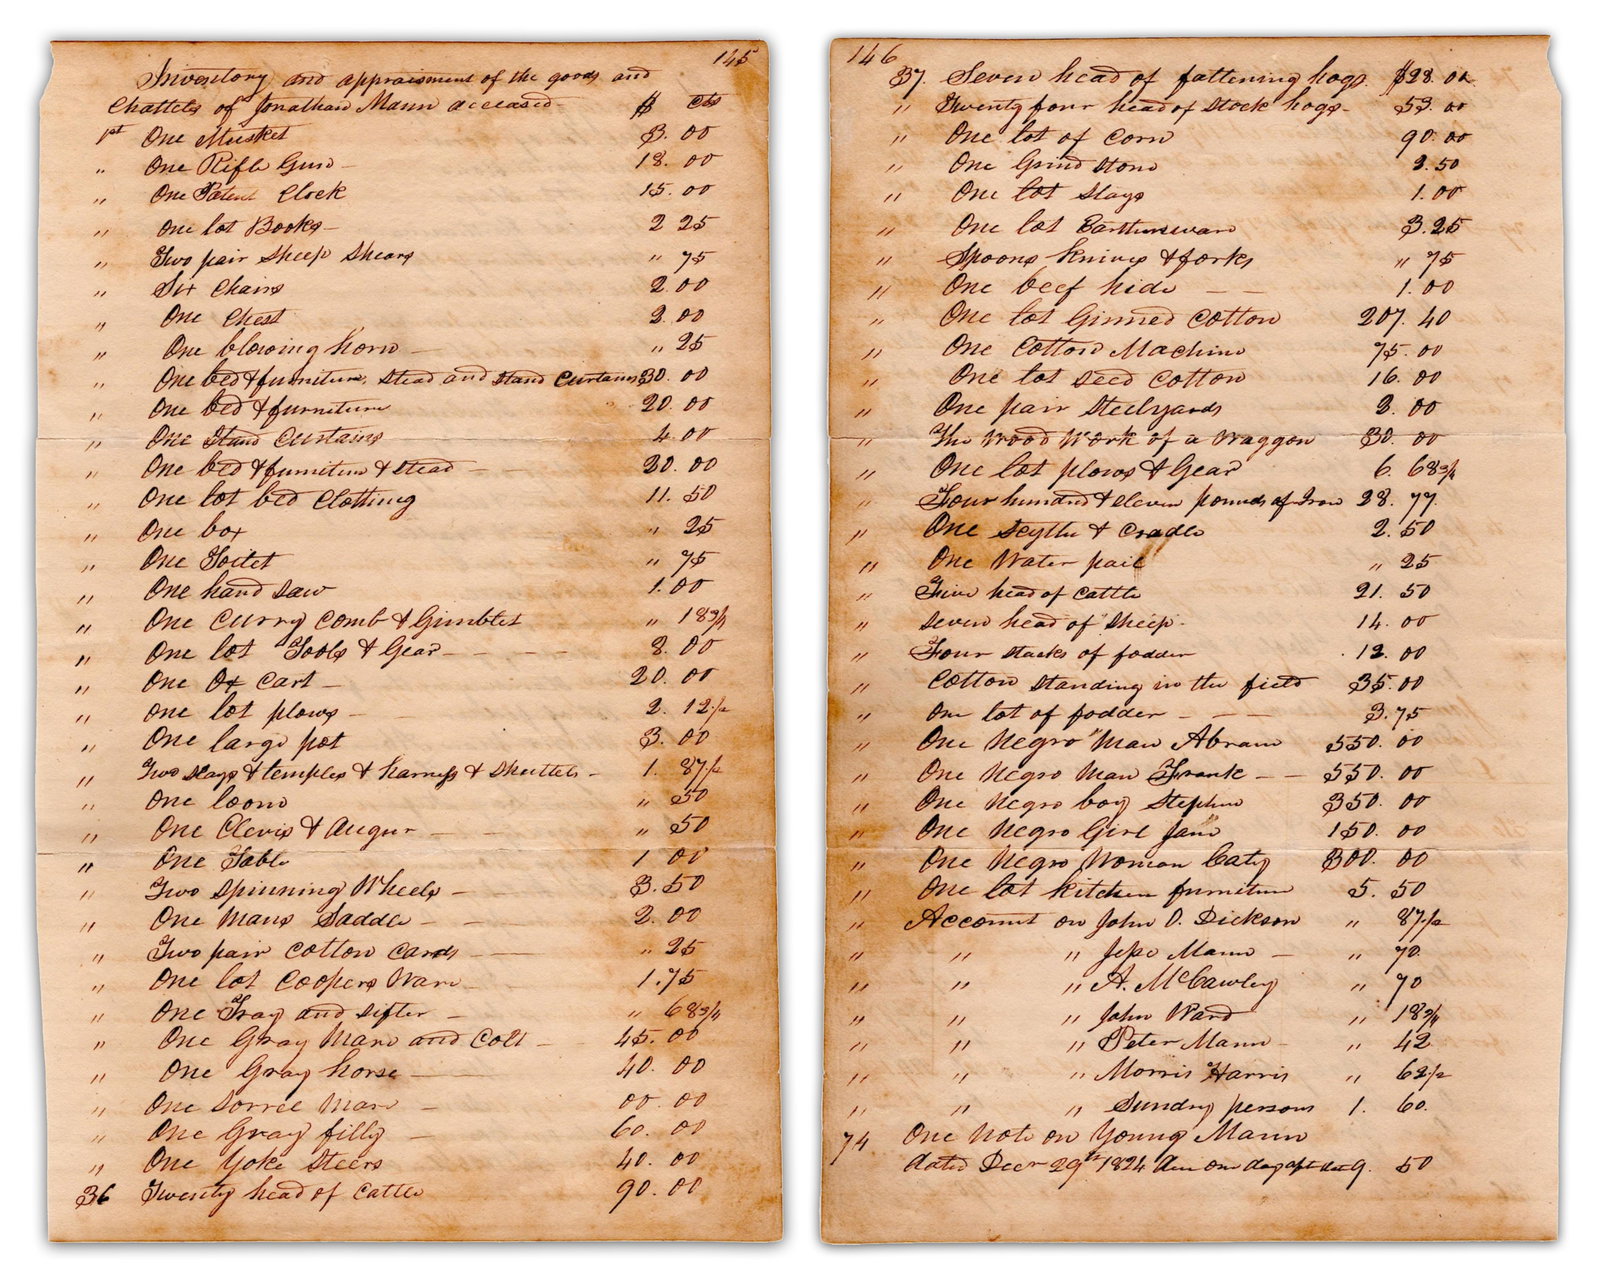 145
Inventory and appraisment of the goods and
Chattels of Jonathan Mann deceased $ cts
1st One Musket $3.00
" One Rifle Gun 18.00
" One Patent Clock 15.00
" One lot Books 2 25
" Two pair sheep shears " 75
" Six Chairs 2.00
" One Chest 2.00
" One blowing horn " 25
" One bed & furniture, stead and stand Curtains 30.00
" One bed & furniture 20.00
" One Stand Curtains 4.00
" One bed & furniture & stead 20.00
" One lot bed Clothing 11.50
" One box " 25
" One Toilet " 75
" One hand saw 1.00
" One Curry Comb & Gimblet " 18 3/4
" One lot Tools & Gear 2.00
" One Ox Cart 20.00
" One lot plows 2.12 1/2
" One large pot 3.00
" Two slays & temples & harness & shuttels 1.87 1/2
" One loom " 50
" One Clevis & Augur " 50
" One Table 1 00
" Two Spinning Wheels 3.50
" One Mans Saddle 2.00
" Two pair Cotton Cards " 25
" One lot Coopers Ware 1.75
" One Tray and sifter " 68 3/4
" One Gray Mare and Colt 45.00
" One Gray horse 40.00
" One Sorrel Mare 00.00
" One Gray filly 60.00
" One Yoke Steers 40.00
36 Twenty head of Cattle 90.00
146
37. Seven head of fattening hogs $28.00
" Twenty four head of stock hogs 53.00
" One lot of Corn 90.00
" One Grind stone 2.50
" One lot Slays 1.00
" One lot Earthenware 3.25
" Spoons knives & forks " 75
" One beef hide 1.00
" One lot Ginned Cotton 207.40
" One Cotton Machine 75.00
" One lot seed Cotton 16.00
" One pair Steelyards 2.00
" The Wood Work of a Waggon 30.00
" One lot plows & Gear 6.68 3/4
" Four hundred & eleven pounds of Iron 28.77
" One Scythe & Cradle 2.50
" One Water pail " 25
" Five head of Cattle 21.50
" Seven head of Sheep 14.00
" Four stacks of fodder 12.00
" Cotton standing in the field 35.00
" One lot of fodder 3.75
" One Negro Man Abram 550.00
" One Negro Man Frank 550.00
" One Negro boy Stephen 350.00
" One Negro Girl Jane 150.00
" One Negro Woman Caty 300.00
" One lot kitchen furniture 5.50
" Account on John D. Dickson " 87 1/2
" " " Jesse Mann " 70
" " " A. McCawley " 70
" " " John Ward " 18 3/4
" " " Peter Mann " 42
" " " Morris Harris " 62 1/2
" " " Sundry persons 1.60.
74 One Note on Young Mann
dated Decr 29th 1824 due one day aft date 9.50